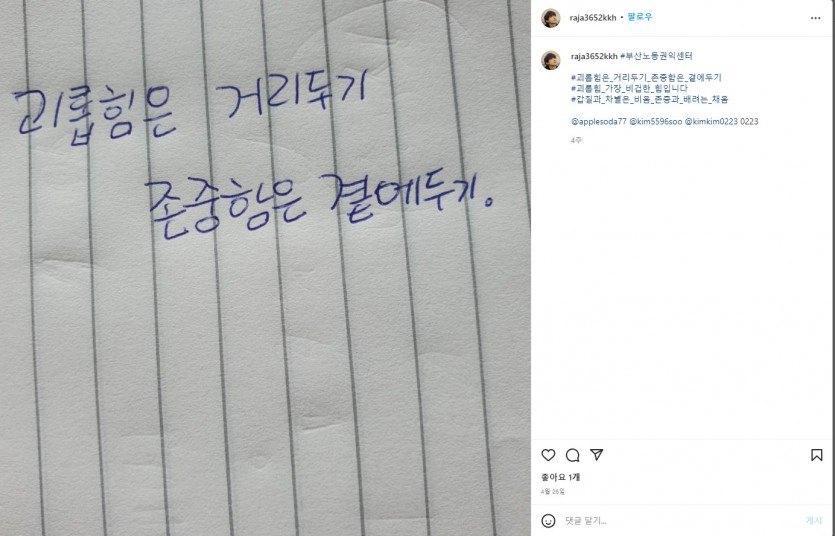 괴롭힘은 거리두기
존중함은 곁에두기.
raja3652kkh • 팔로우
raja3652kkh #부산노동권익센터
#괴롭힘은_거리두기_존중함은_곁에두기
#괴롭힘_가장_비겁한_힘입니다
#갑질과_차별은_비움_존중과_배려는_채움
@applesoda77 @kim5596soo @kimkim0223 0223
4주
좋아요 1개
4월 26일
댓글 달기...
게시